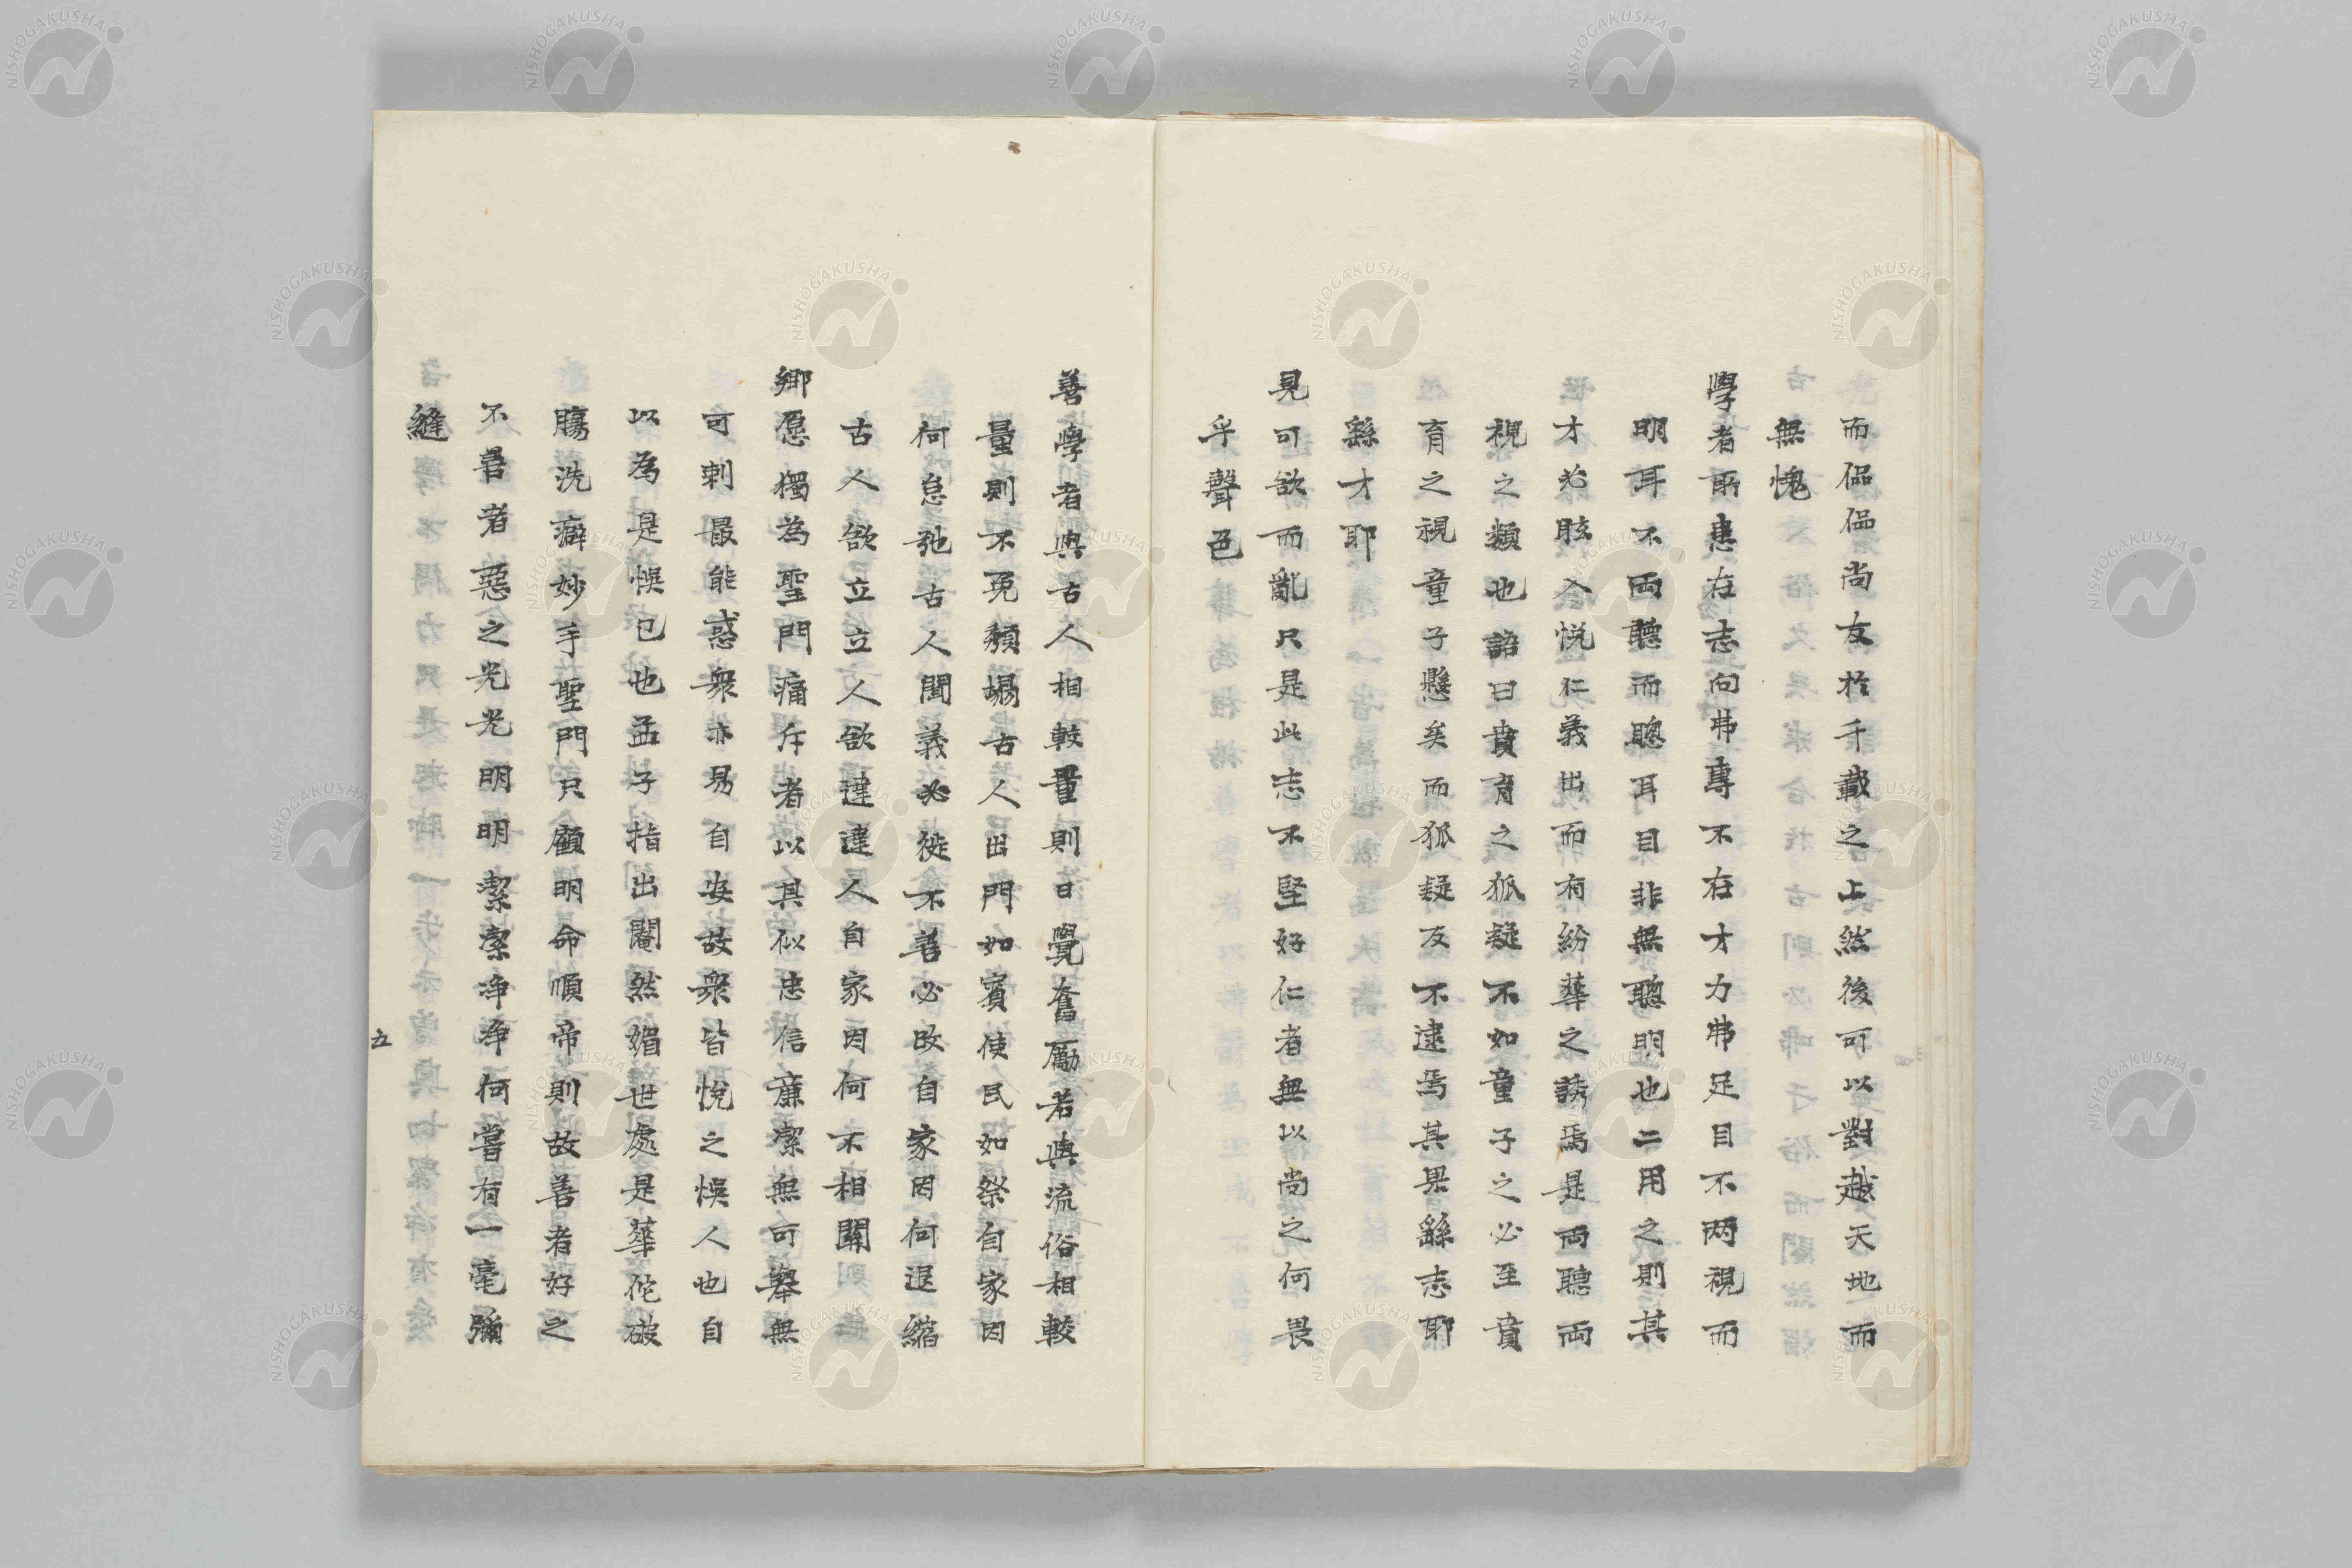 而偘偘尚友於千載之上然後可以對越天地而
無愧
學者所患在志向弗專不在才力弗足目不两視而
明耳不両聽而聰耳目非無聰明也二用之則其
才必眩入悅仁義出而有紛華之誘焉是両聽両
視之類也諺曰賁育之狐疑不如童子之必至賁
育之視童子懸矣而狐疑反不逮焉其果繇志耶
繇才耶
見可欲而亂只是此志不堅好仁者無以尚之何畏
乎聲色
善學者與古人相較量則日覺奮勵若與流俗相較
量則不免頹塌古人出門如賓使民如祭自家因
何怠弛古人聞義必徙不善必改自家因何退縮
古人欲立立人欲達達人自家因何不相關
鄉愿獨為聖門痛斥者以其似忠信廉潔無可舉無
可刺最能惑衆亦易自安故衆皆悅之悞人也自
以為是悞已也孟子指出閹然媚世處是華佗破
腸洗癖妙手聖門只顧明命順帝則故善者好之
不善者惡之光光明明潔潔净净何嘗有一毫彌
縫
五
NISHOGAKUSHA